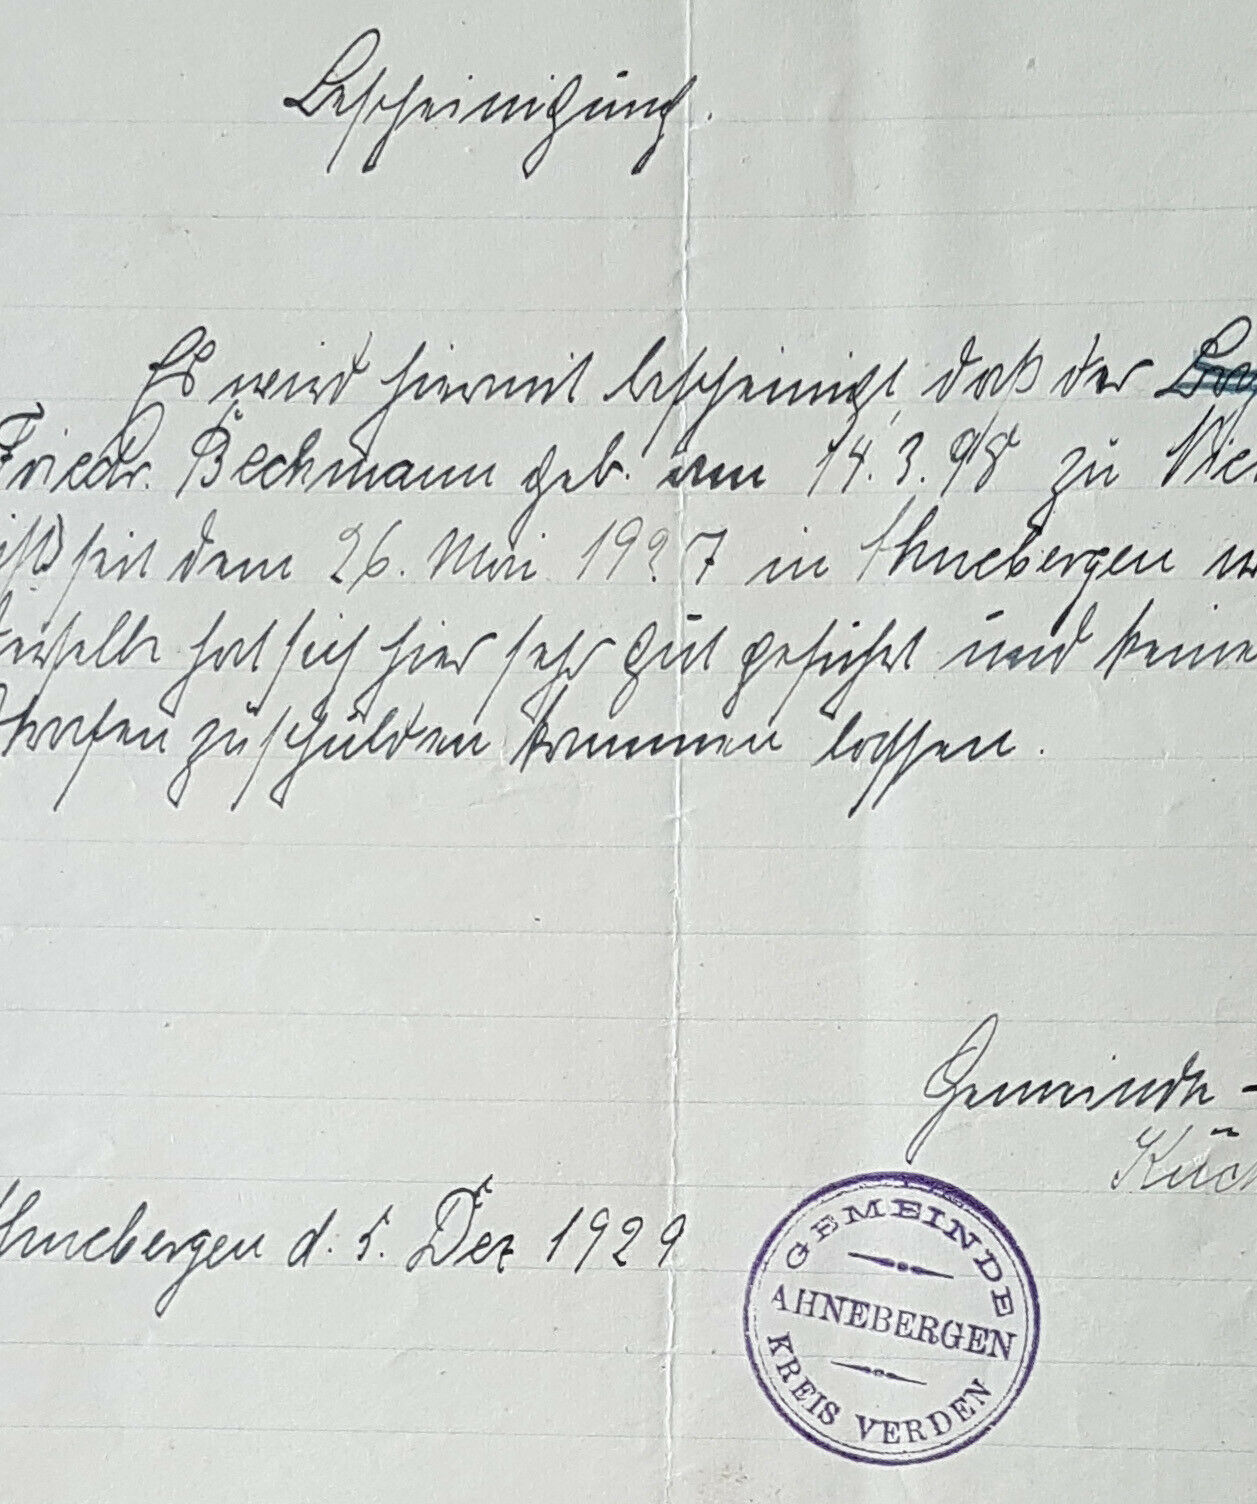 Bescheinigung.
Es wird hiermit bescheinigt, daß der
Friedr. Beckmann geb. am 14.3.98 zu
ist seit dem 26. Mai 1927 in Ahnebergen
derselbe hat sich hier sehr gut geführt und keine
Strafen zu schulden kommen lassen.
Gemeinde-
Ahnebergen d. 5. Dez 1929
GEMEINDE
AHNEBERGEN
KREIS VERDEN